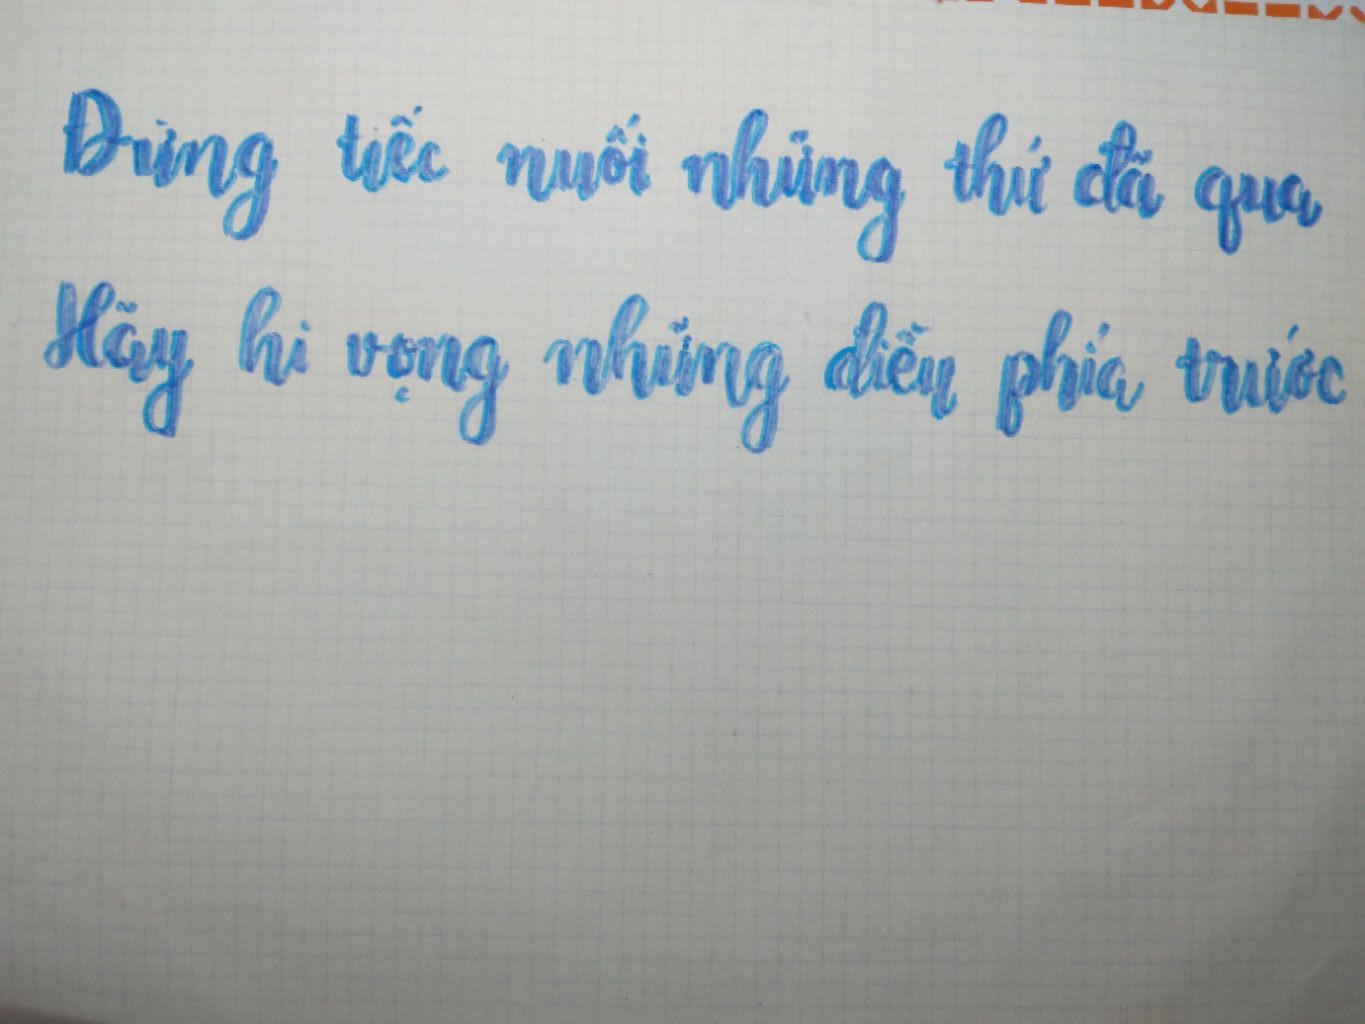 Đừng tiếc nuối những thứ đã qua
Hãy hi vọng những điều phía trước